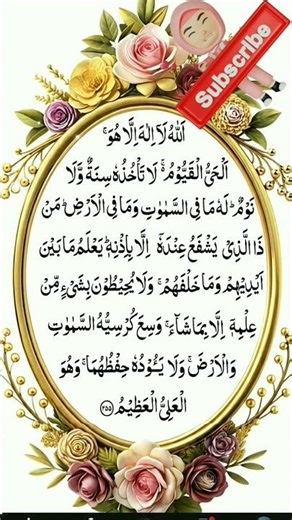 Subscribe
اَللّٰهُ لَاۤ اِلٰهَ اِلَّا هُوَۚ
اَلْحَىُّ الْقَيُّوْمُ ۚ لَا تَاْخُذُهٗ سِنَةٌ وَّلَا
نَوْمٌ ؕ لَهٗ مَا فِى السَّمٰوٰتِ وَمَا فِى الْاَرْضِ ؕ مَنْ
ذَا الَّذِىْ يَشْفَعُ عِنْدَهٗۤ اِلَّا بِاِذْنِهٖ ؕ يَعْلَمُ مَا بَيْنَ
اَيْدِيْهِمْ وَمَا خَلْفَهُمْ ۚ وَلَا يُحِيْطُوْنَ بِشَىْءٍ مِّنْ
عِلْمِهٖۤ اِلَّا بِمَا شَآءَ ۚ وَسِعَ كُرْسِيُّهُ السَّمٰوٰتِ
وَالْاَرْضَ ۚ وَلَا يَـُٔوْدُهٗ حِفْظُهُمَا ۚ وَهُوَ
الْعَلِىُّ الْعَظِيْمُ ﴿۲۵۵﴾